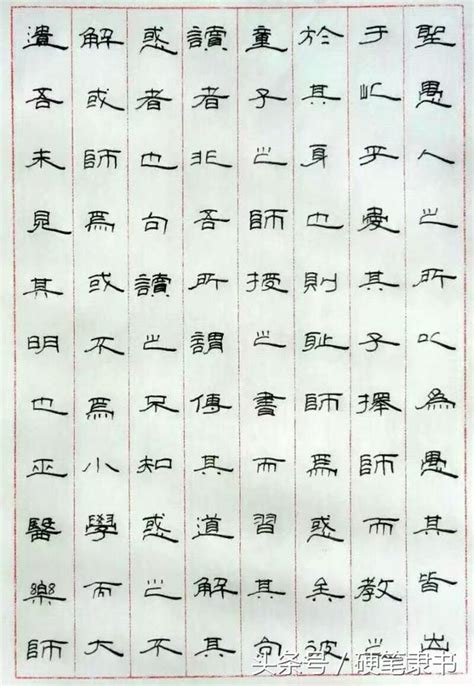 聖愚人之所以為愚其皆出
于此乎愛其子擇師而教之
於其身也則耻師焉惑矣彼
童子之師授之書而習其句
讀者非吾所謂傳其道解其
惑者也句讀之不知惑之不
解或師焉或不焉小學而大
遺吾未見其明也巫醫樂師
头条号 / 硬笔隶书